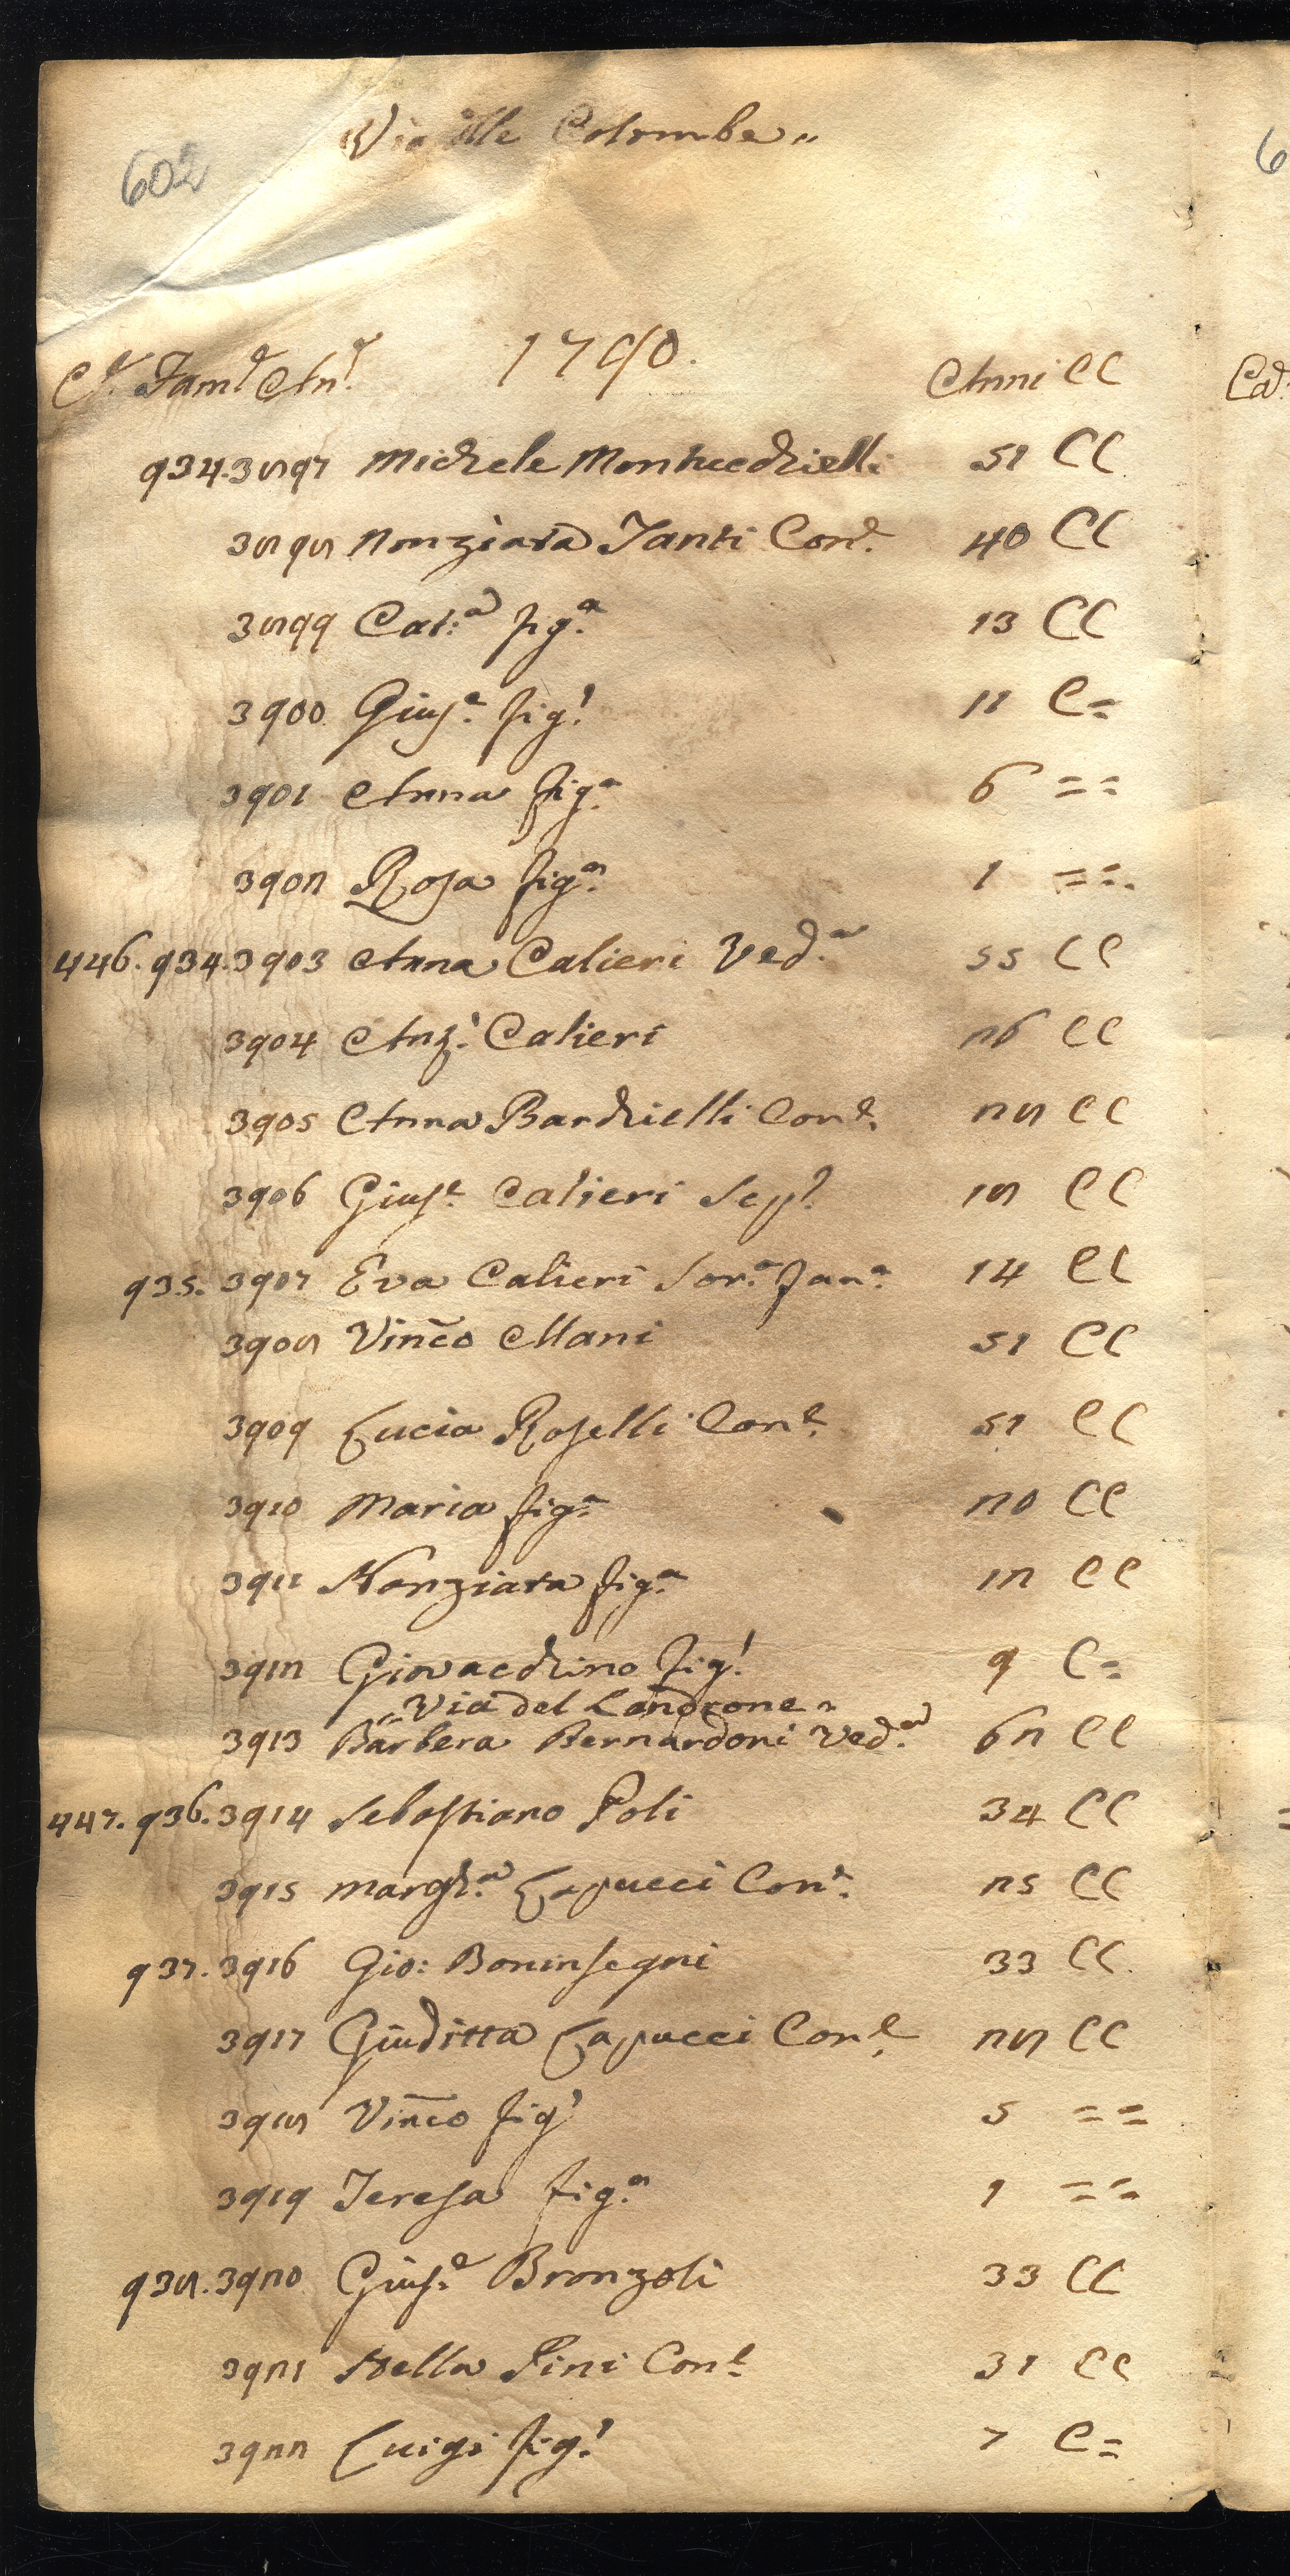 Via Colombe „
602
1790.
C.e Fam.e An.e Anni CC
934. 3897 Michele Montucchielli 51 CC
3898 Nonziata Tanti Con.e 40 CC
3899 Cat.a fig.a 13 CC
3900 Gius.e fig.l 11 C=
3901 Anna fig.a 6 = =
3902 Rosa fig.a 1 = =
446. 934. 3903 Anna Calieri Ved.a 55 CC
3904 Ang.l Calieri 26 CC
3905 Anna Barchielli Con.e 28 CC
3906 Gius.e Calieri 18 CC
935. 3907 Eva Calieri Sor.a 14 CC
3908 Vinco Mani 51 CC
3909 Lucia Roselli Con.e 51 CC
3910 Maria fig.a 20 CC
3911 Nonziata fig.a 12 CC
3912 Giovacchino fig.l 9 C=
„ Via del Landrone „
3913 Barbera Bernardoni Ved.a 62 CC
447. 936. 3914 Sebastiano Poli 34 CC
3915 Margh.a Capucci Con.e 25 CC
937. 3916 Gio: Boninsegni 33 CC
3917 Giuditta Capucci Con.e 28 CC
3918 Vinco fig.l 5 = =
3919 Teresa fig.a 1 = =
938. 3920 Gius.e Bronzoli 33 CC
3921 Stella Pini Con.e 31 CC
3922 Luigi fig.l 7 C=
6